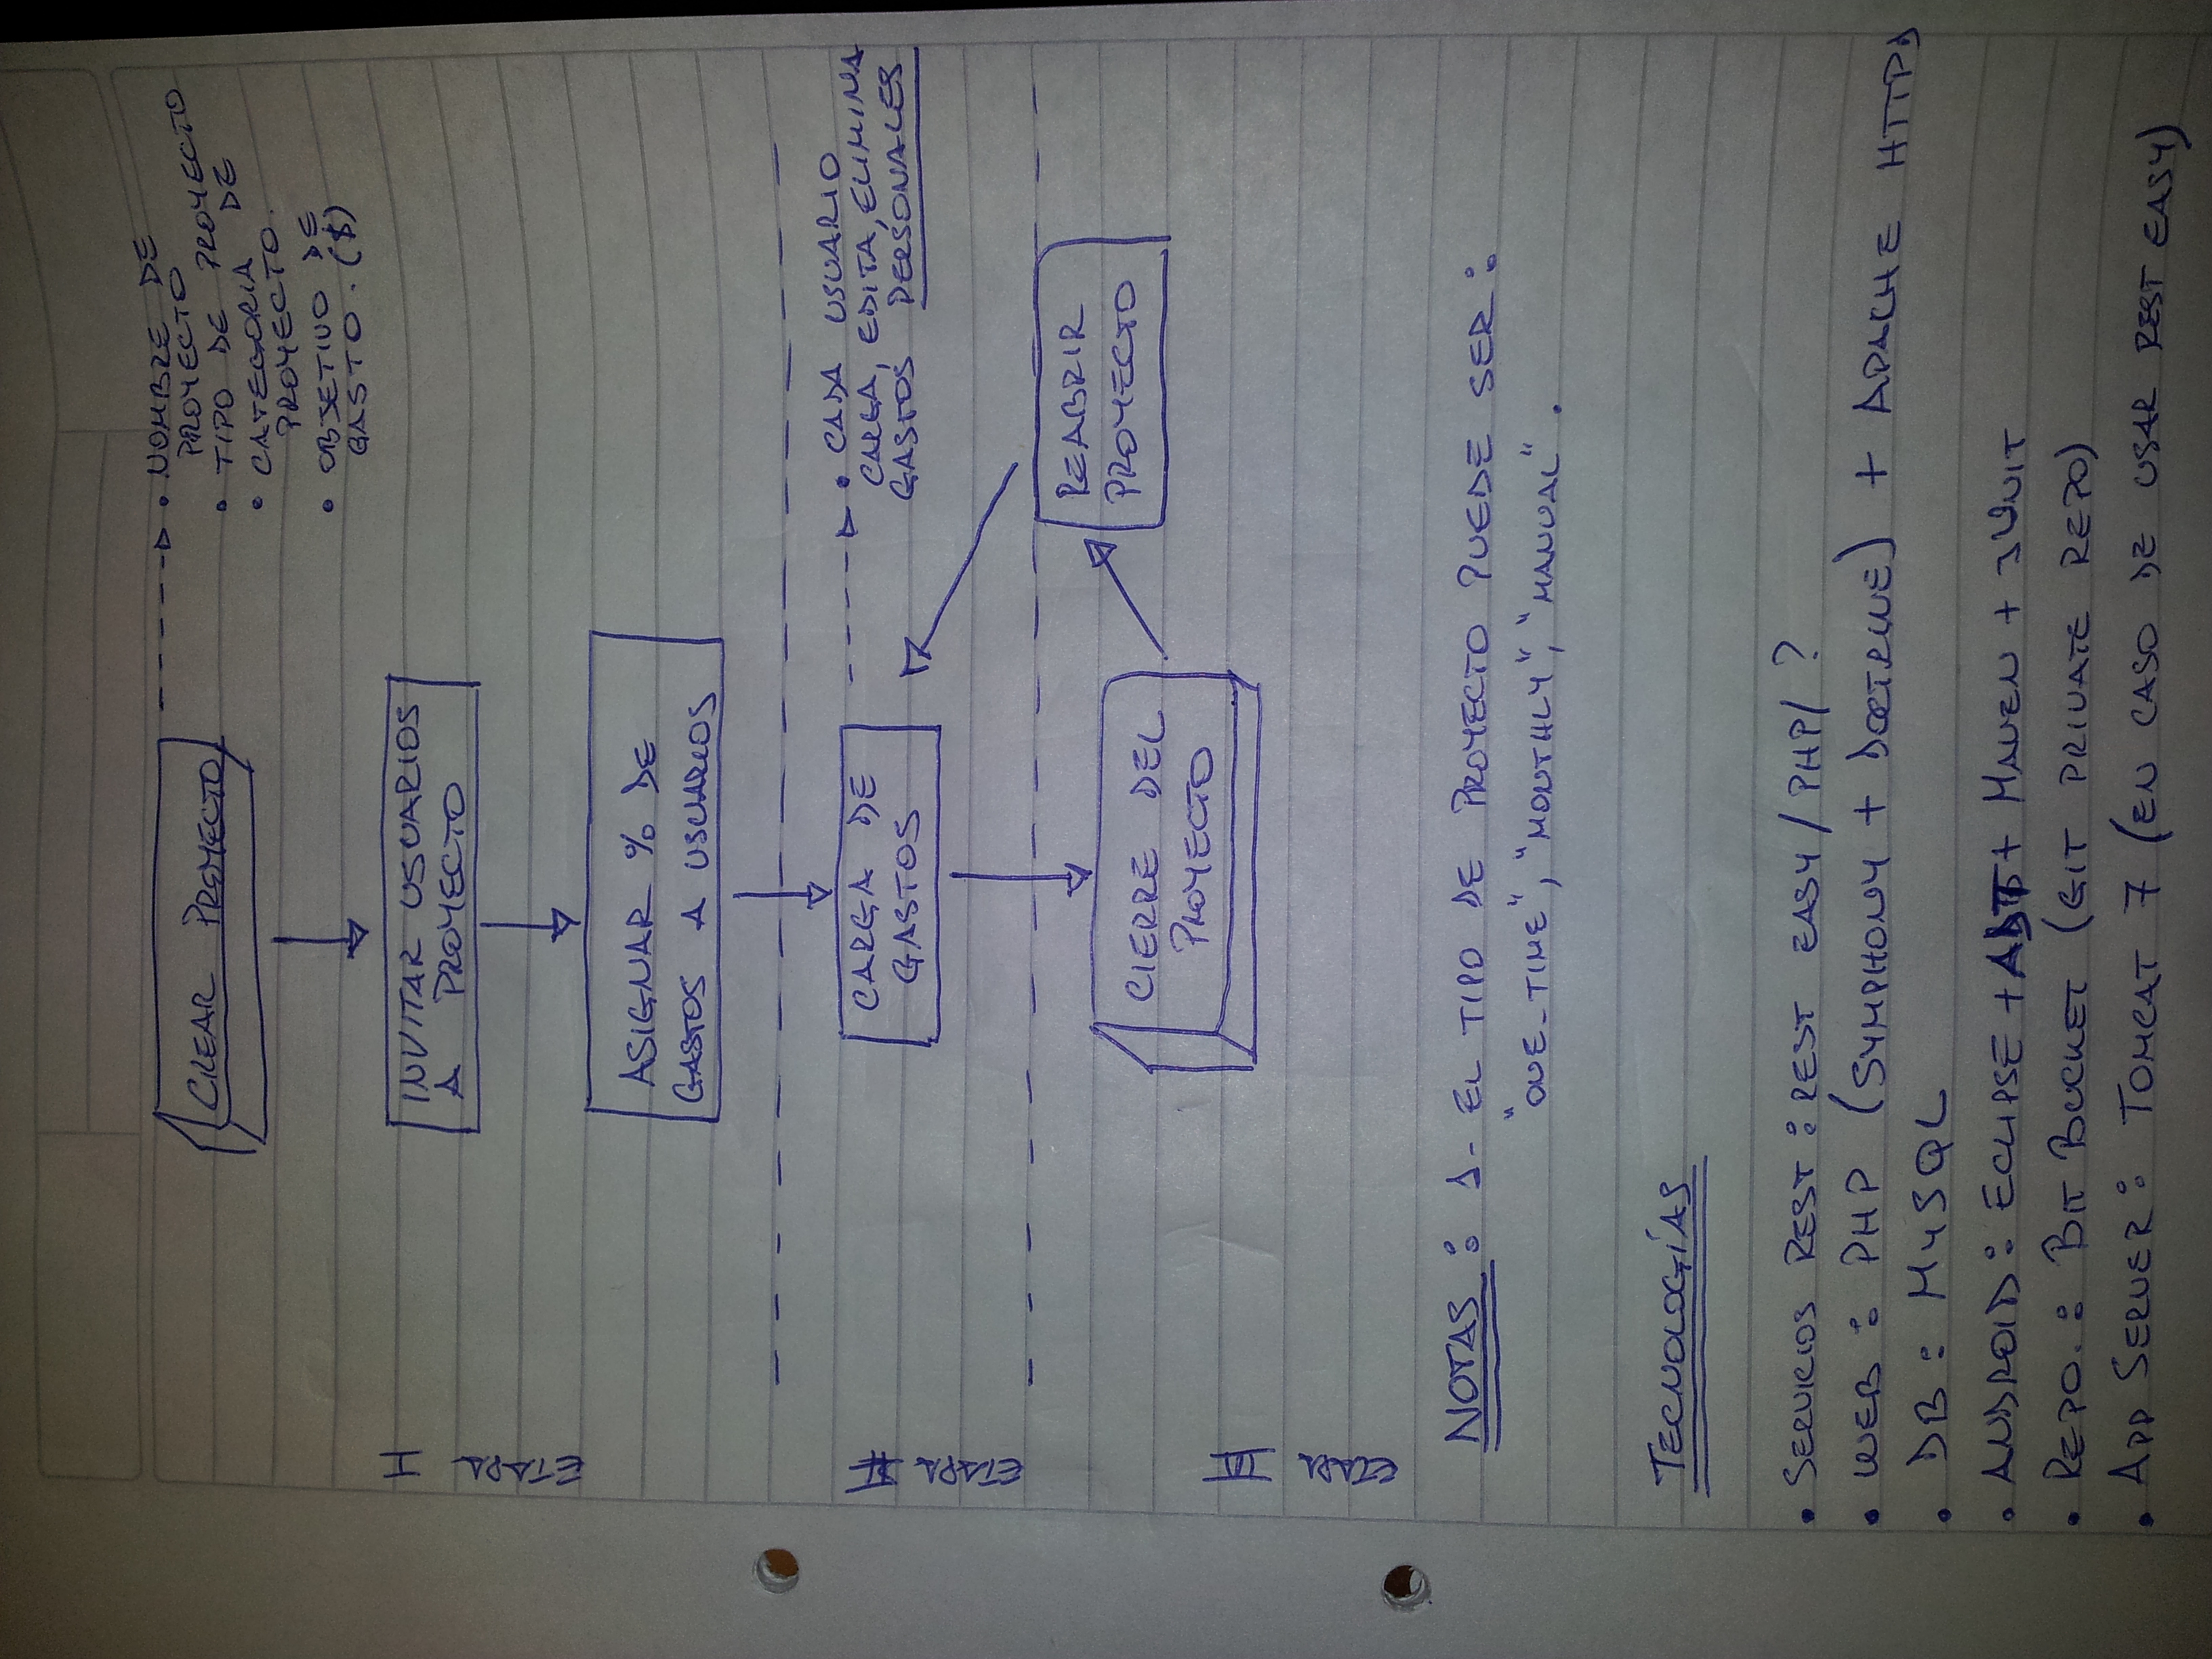 CREAR PROYECTO
• NOMBRE DE
PROYECTO
• TIPO DE PROYECTO
• CATEGORIA DE
PROYECTO.
• OBJETIVO DE
GASTO. ($)
ETAPA I
INVITAR USUARIOS
A PROYECTO
ASIGNAR % DE
GASTOS A USUARIOS
ETAPA II
CARGA DE
GASTOS
• CADA USUARIO
CARGA, EDITA, ELIMINA
GASTOS PERSONALES
REABRIR
PROYECTO
CIERRE DEL
PROYECTO
ETAPA III
NOTAS: 1- EL TIPO DE PROYECTO PUEDE SER:
"ONE-TIME", "MONTHLY", "MANUAL".
TECNOLOGÍAS
• SERVICIOS REST: REST EASY / PHP / ?
• WEB: PHP (SYMPHONY + DOCTRINE) + APACHE HTTPD
• DB: MYSQL
• ANDROID: ECLIPSE + ADT + MAVEN + JUNIT
• REPO.: BIT BUCKET (GIT PRIVATE REPO)
• APP SERVER: TOMCAT 7 (EN CASO DE USAR REST EASY)